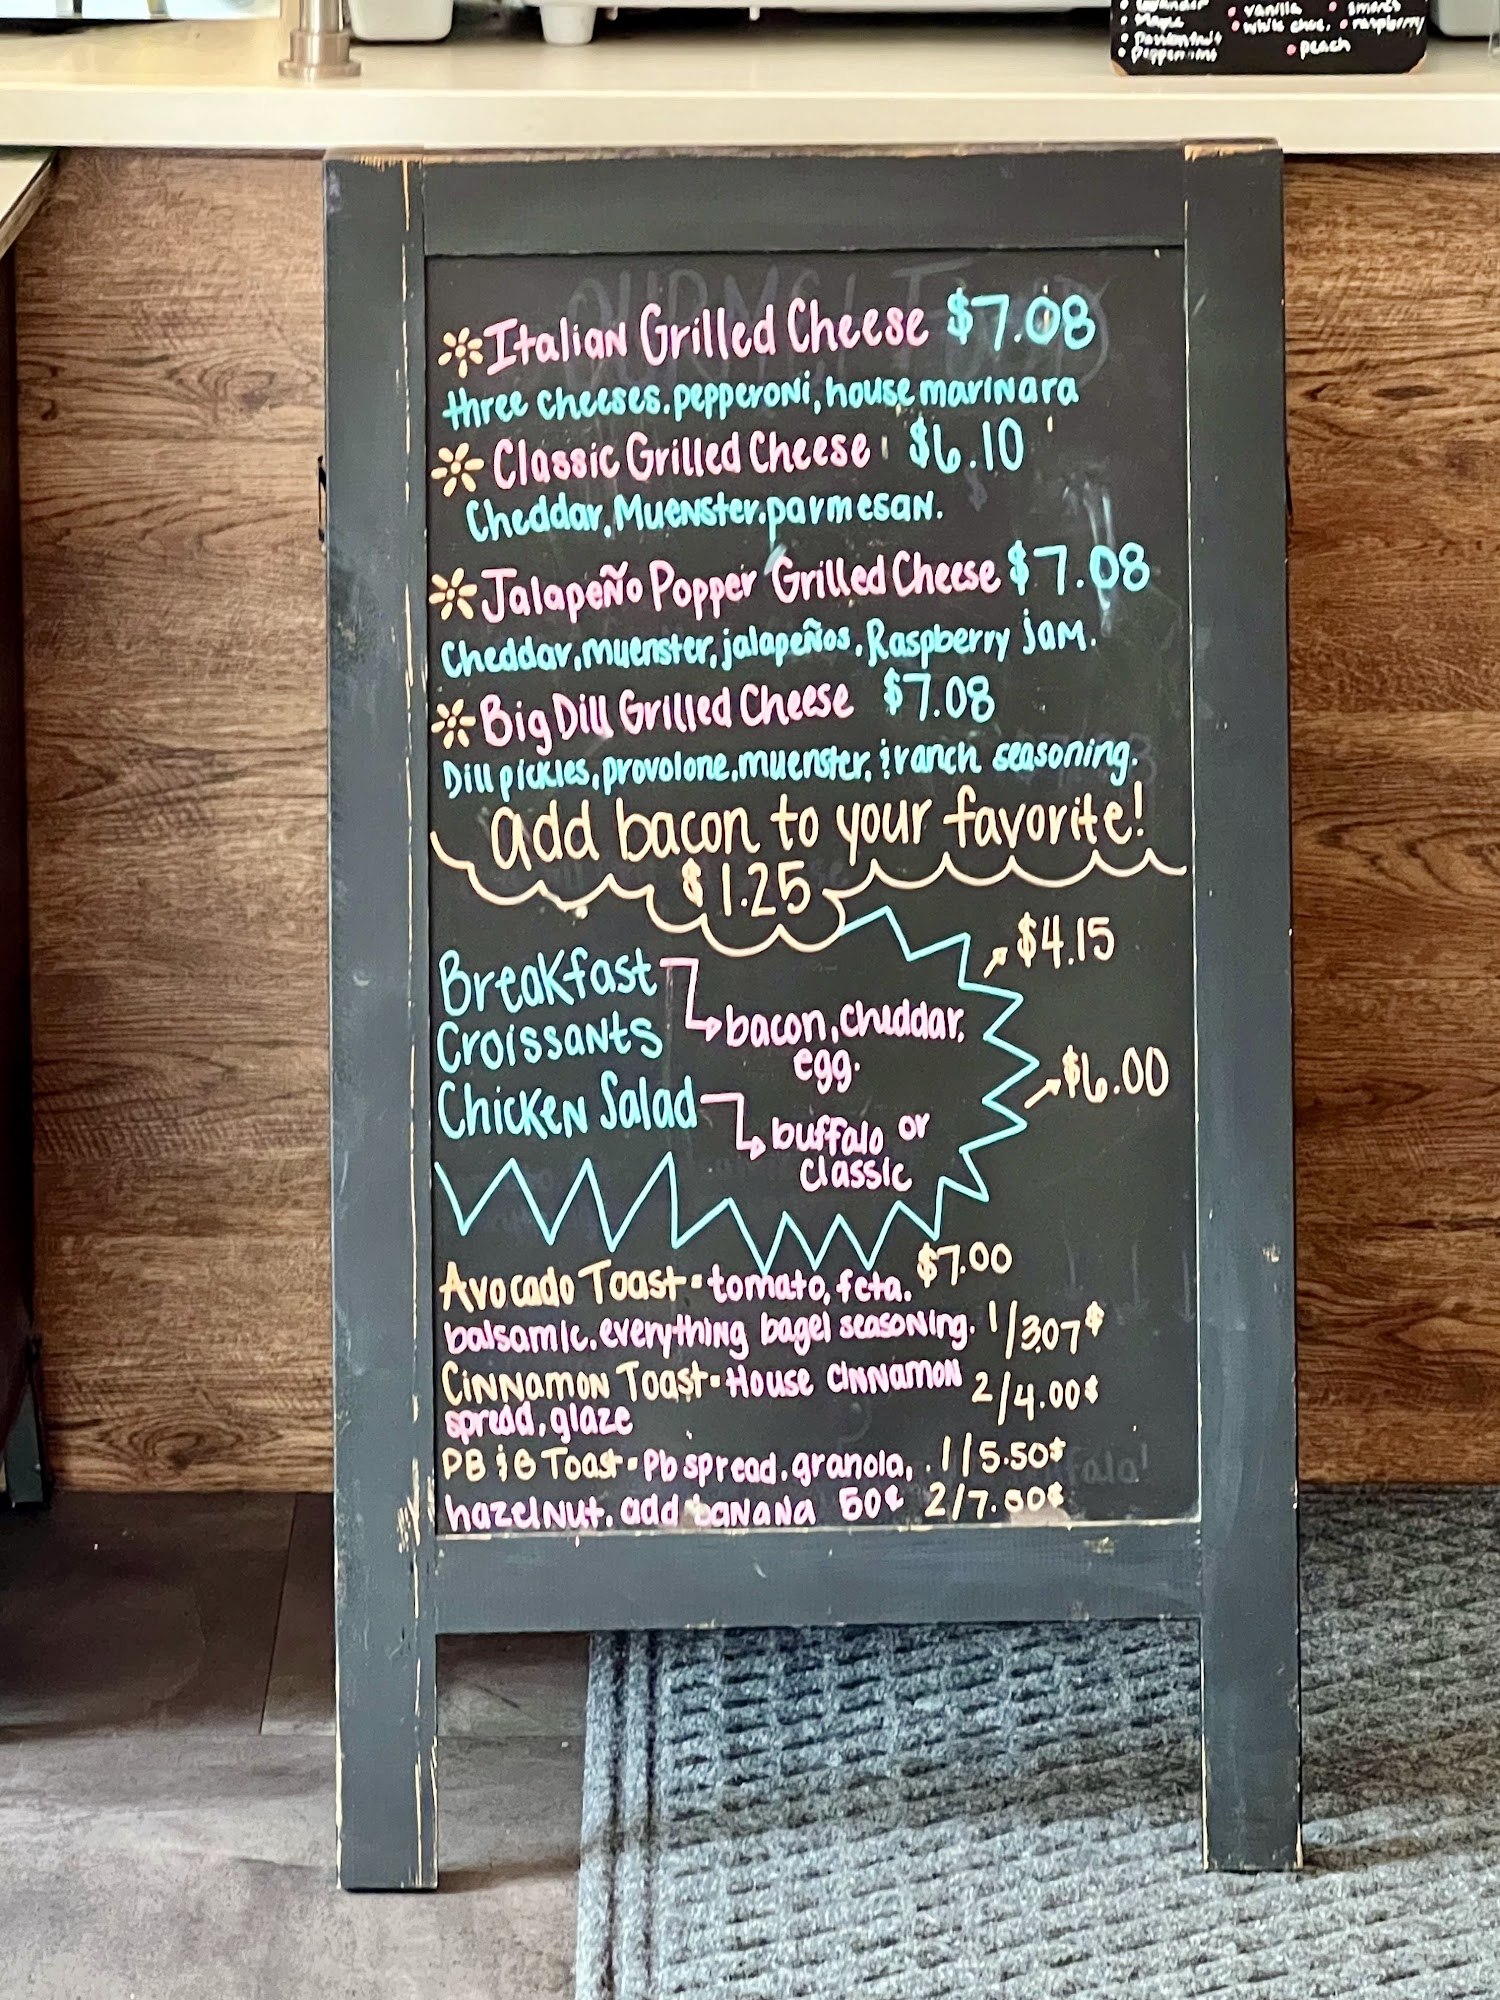 vanilla
white choc.
raspberry
peach
Italian Grilled Cheese $7.08
three cheeses, pepperoni, house marinara
Classic Grilled Cheese $6.10
Cheddar, Muenster, parmesan.
Jalapeño Popper Grilled Cheese $7.08
Cheddar, muenster, jalapeños, Raspberry jam.
Big Dill Grilled Cheese $7.08
Dill pickles, provolone, muenster, & ranch seasoning.
add bacon to your favorite!
$1.25
$4.15
Breakfast
Croissants
bacon, cheddar,
egg.
$6.00
Chicken Salad
buffalo or
classic
Avocado Toast - tomato, feta, $7.00
balsamic, everything bagel seasoning. 1/3.07$
Cinnamon Toast - House cinnamon 2/4.00$
spread, glaze
PB & G Toast - Pb spread, granola, 1/5.50$
hazelnut, add banana 50¢ 2/7.50$